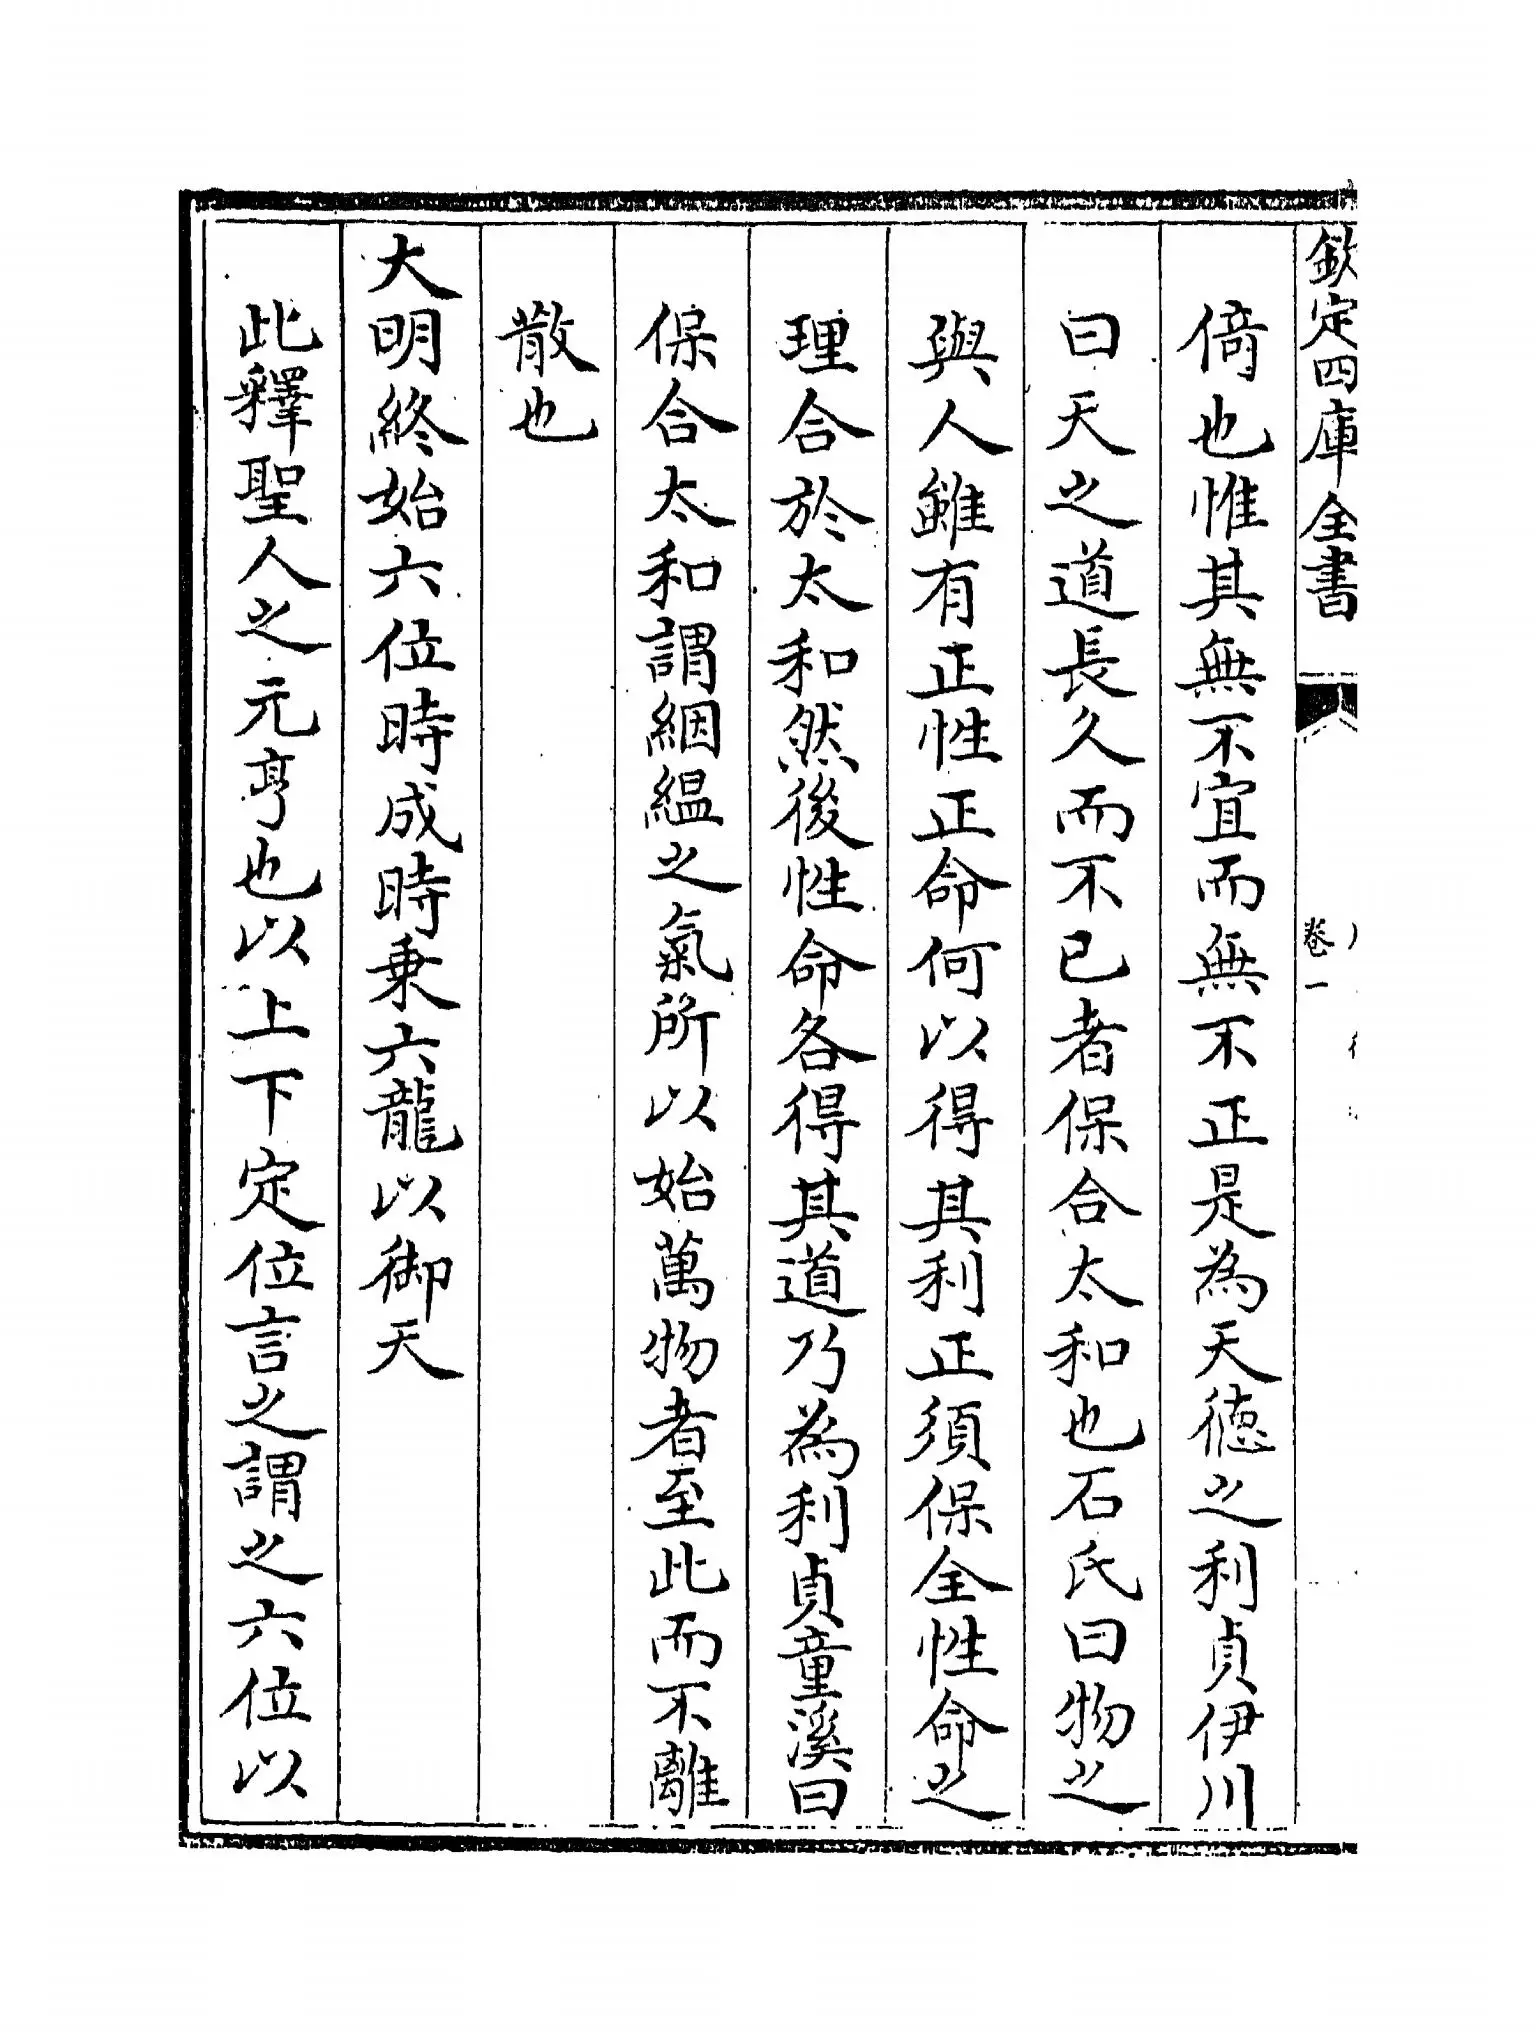 欽定四庫全書
卷一
倚也惟其無不宜而無不正是為天德之利貞伊川
曰天之道長久而不已者保合太和也石氏曰物之
與人雖有正性正命何以得其利正須保全性命之
理合於太和然後性命各得其道乃為利貞童溪曰
保合太和謂絪縕之氣所以始萬物者至此而不離
散也
大明終始六位時成時乗六龍以御天
此釋聖人之元亨也以上下定位言之謂之六位以